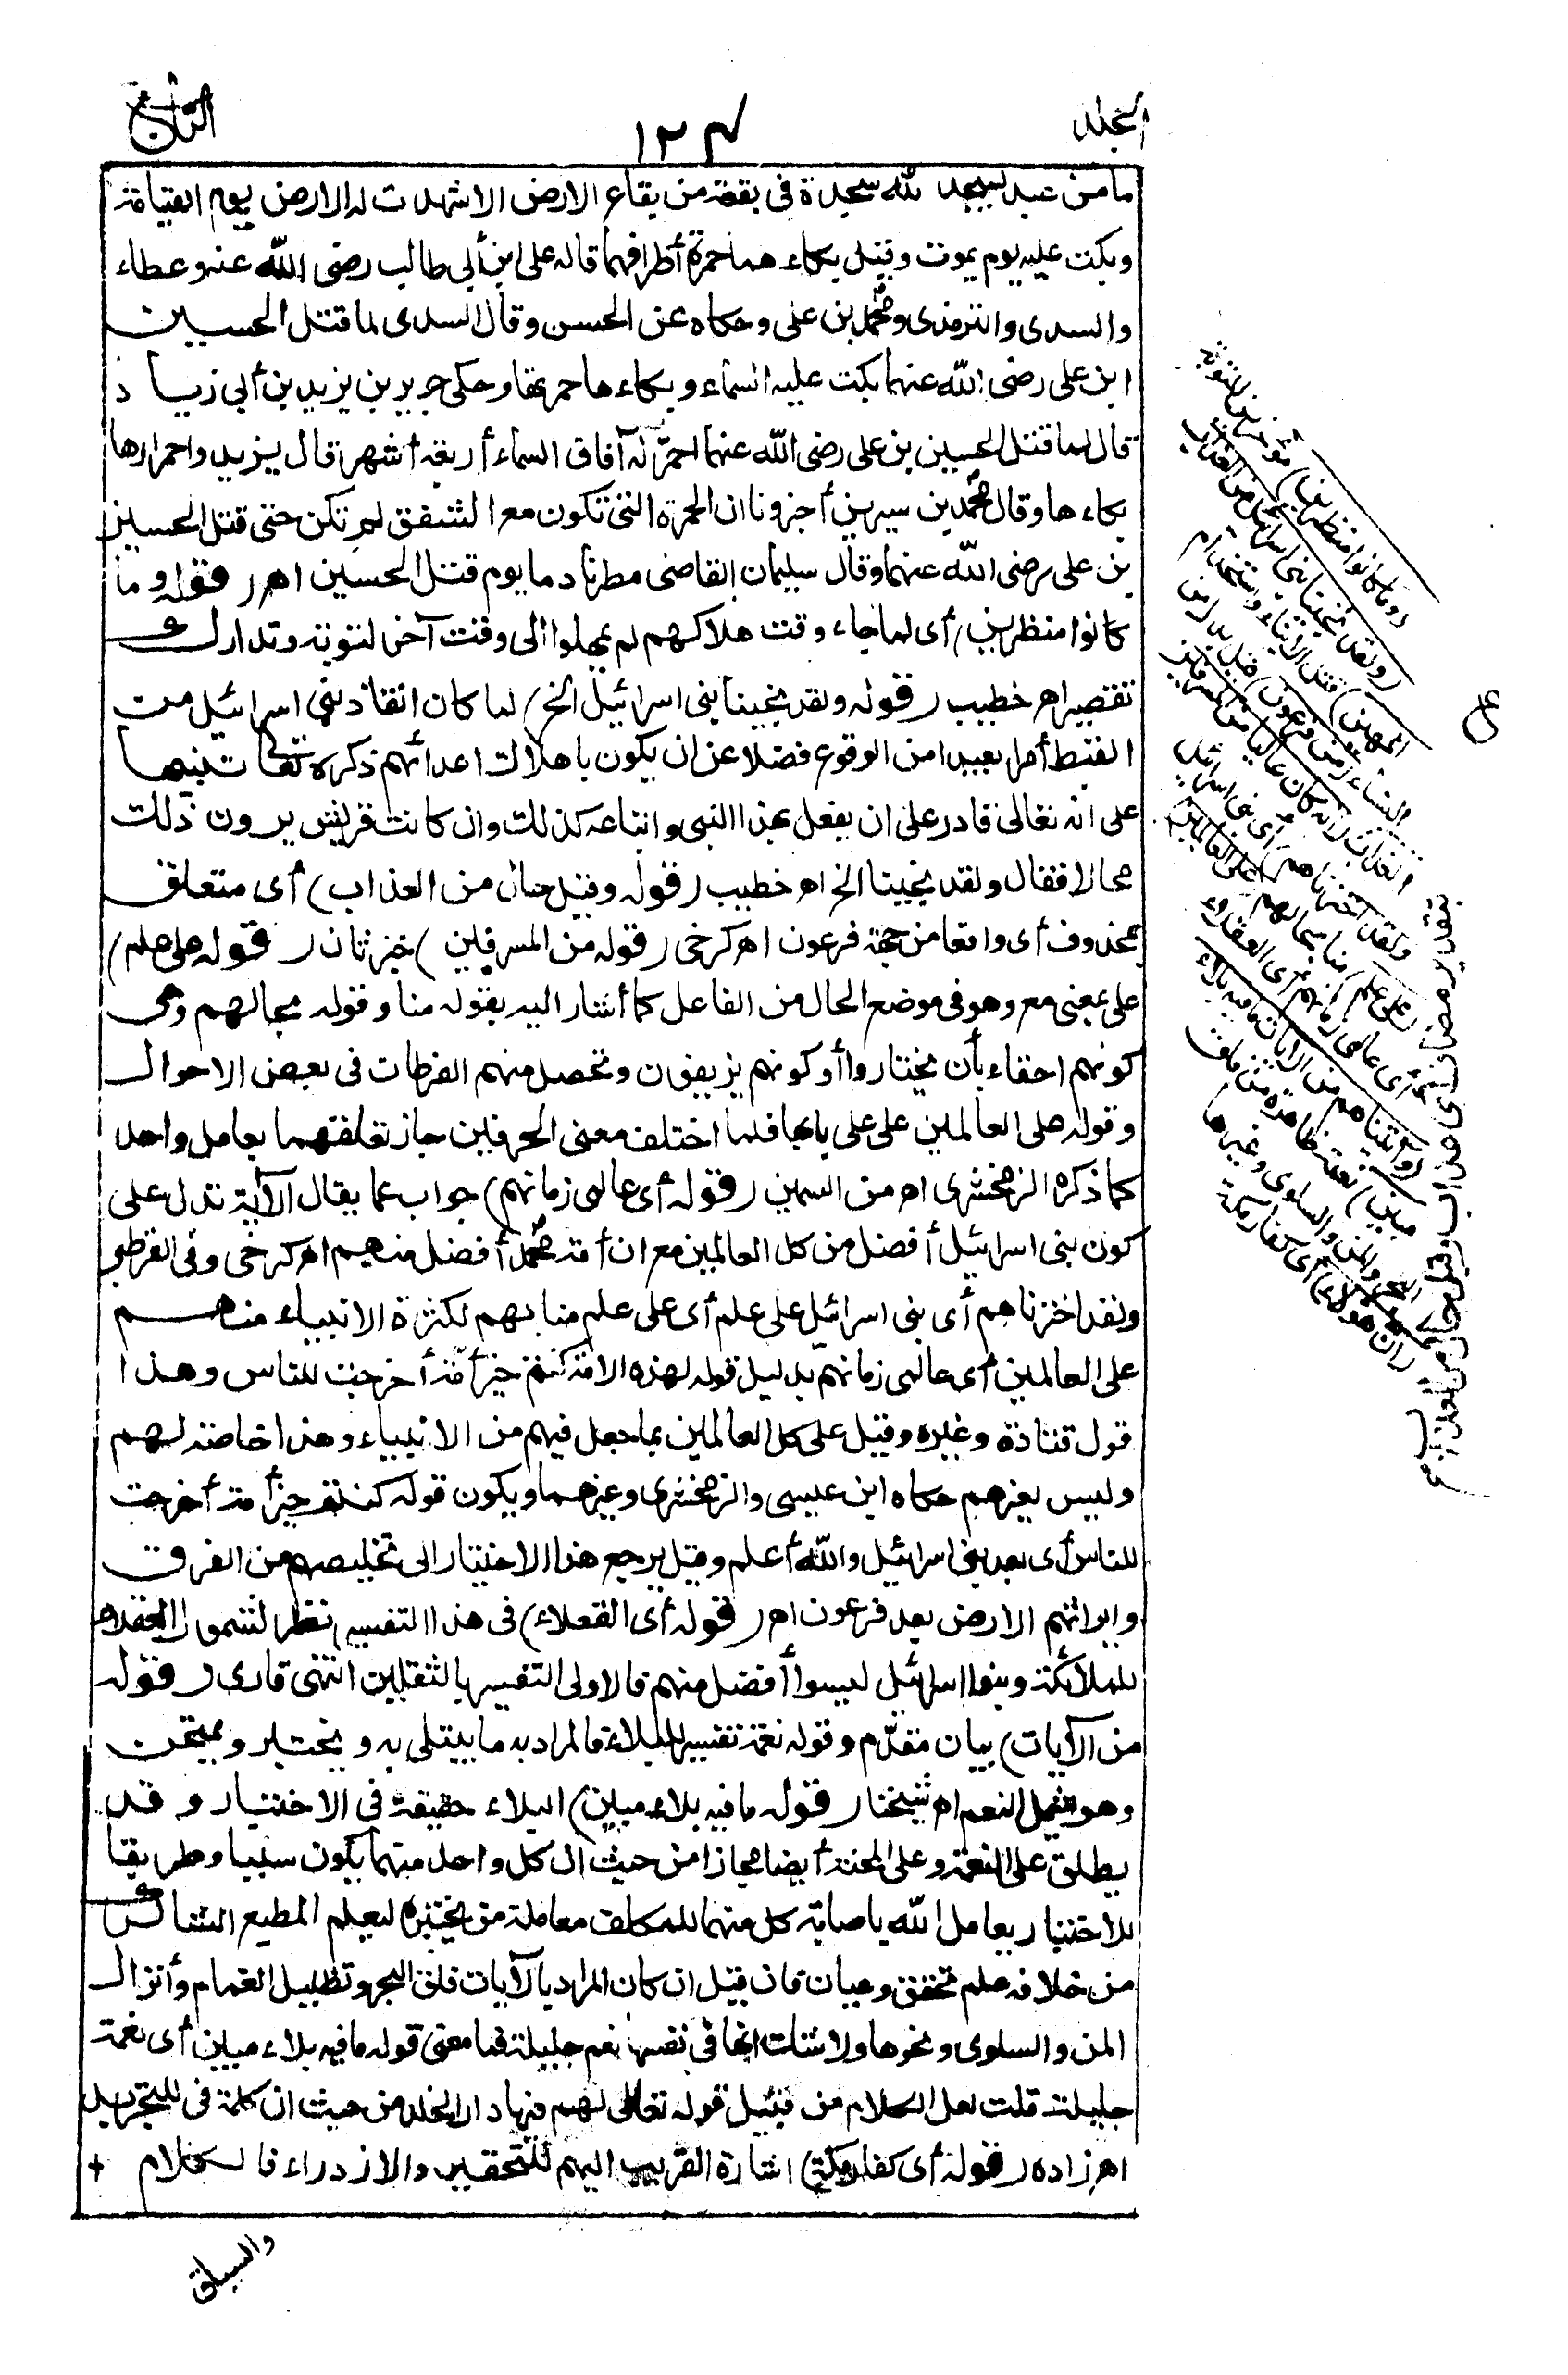 المجلد
١٢٤
ما من عبد يسجد لله سجدة في بقعة من بقاع الارض الا شهدت له الارض يوم القيامة
وبكت عليه يوم يموت وقيل بكاءهما حمرة أطرافهما قاله على ابن أبي طالب رضى الله عنه وعطاء
والسدى والترمذى ومحمد بن على وحكاه عن الحسن وقال السدى لما قتل الحسين
ابن على رضى الله عنهما بكت عليه السماء وبكاءها حمرتها وحكى جرير بن يزيد بن أبي زياد
قال لما قتل الحسين بن على رضى الله عنهما احمرّ له آفاق السماء أربعة أشهر قال يزيد واحمرارها
بكاءها وقال محمد بن سيرين أخبرونا ان الحمرة التى تكون مع الشفق لم تكن حتى قتل الحسين
بن على رضى الله عنهما وقال سليمان القاضى مطرنا دما يوم قتل الحسين اهـ (قوله وما
كانوا منظرين) أى لما جاء وقت هلاكهم لم يمهلوا الى وقت آخر لتوبة وتدارك
تقصير اهـ خطيب (قوله ولقد نجينا بنى اسرائيل الخ) لما كان انقاذ بنى اسرائيل من
القبط أمرا بعيدا من الوقوع فضلا عن ان يكون باهلاك اعدائهم ذكره تعالى تنبيها
على انه تعالى قادر على ان يفعل بهذا النبى واتباعه كذلك وان كانت قريش يرون ذلك
محالا فقال ولقد نجينا الخ اهـ خطيب (قوله وقيل حال من العذاب) أى متعلق
بمحذوف أى واقعا من جهة فرعون اهـ كرخى (قوله من المسرفين) خبر ثان (قوله على علم)
على بمعنى مع وهو في موضع الحال من الفاعل كما أشار اليه بقوله منا وقوله بحالهم وهى
كونهم احقاء بأن يختاروا أو كونهم يزيغون وتحصل منهم الفرطات في بعض الاحوال
وقوله على العالمين على على بابها فلما اختلف معنى الحرفين جاز تعلقهما بعامل واحد
كما ذكره الزمخشرى اهـ من السمين (قوله أى عالمى زمانهم) جواب عما يقال الآية تدل على
كون بنى اسرائيل أفضل من كل العالمين مع ان أمة محمد أفضل منهم اهـ كرخى وفى القرطبى
ولقد اخترناهم أى بنى اسرائيل على علم أى على علم منا بهم لكثرة الانبياء منهم
على العالمين أى عالمى زمانهم بدليل قوله لهذه الامة كنتم خير أمّة أخرجت للناس وهذا
قول قتادة وغيره وقيل على كل العالمين بما جعل فيهم من الانبياء وهذا خاصة لهم
وليس لغيرهم حكاه ابن عيسى والزمخشرى وغيرهما ويكون قوله كنتم خير أمة أخرجت
للناس أى بعد بنى اسرائيل والله أعلم وقيل يرجع هذا الاختيار الى تخليصهم من الغرق
وايراثهم الارض بعد فرعون اهـ (قوله أى العقلاء) في هذا التفسير نظر لشمول العقلاء
للملائكة وبنوا اسرائيل ليسوا أفضل منهم فالاولى التفسير بالثقلين انتهى قارى (قوله
من الآيات) بيان مقدّم وقوله نعمة تفسير للبلاء فالمراد به ما يبتلى به ويختبر ويمتحن
وهو يشمل النعم اهـ شيخنا (قوله ما فيه بلاء مبين) البلاء حقيقة في الاختبار وقد
يطلق على النعمة وعلى المحنة أيضا مجازا من حيث ان كل واحد منهما يكون سببا وطريقا
للاختبار يعامل الله باصابة كل منهما للمكلف معاملة من يختبره ليعلم المطيع الشاكر
من خلافه علم تحقق وعيان فان قيل ان كان المراد بالآيات فلق البحر وتظليل الغمام وأنزال
المن والسلوى ونحوها ولا شك انها في نفسها نعم جليلة فما معنى قوله ما فيه بلاء مبين أى نعمة
جليلة قلت لعل الكلام من قبيل قوله تعالى لهم فيها دار الخلد من حيث ان كلمة في للتجريد
اهـ زاده (قوله أى كفار مكة) اشارة القريب اليهم للتحقير والازدراء فالكلام
(وما كانوا منظرين) مؤخرين للتوبة
(ولقد نجينا بنى اسرائيل من العذاب
المهين) قتل الابناء واستخدام
النساء (من فرعون) قيل بدل من
العذاب (انه كان عاليا من المسرفين
ولقد اخترناهم) أى بنى اسرائيل
(على علم) منا بحالهم (على العالمين)
أى عالمى زمانهم أى العقلاء
(وآتيناهم من الآيات ما فيه بلاء
مبين) نعمة ظاهرة من فلق
البحر والمن والسلوى وغيرها
(ان هؤلاء) أى كفار مكة
بتقدير مضاف أى عذاب وقيل حال من العذاب